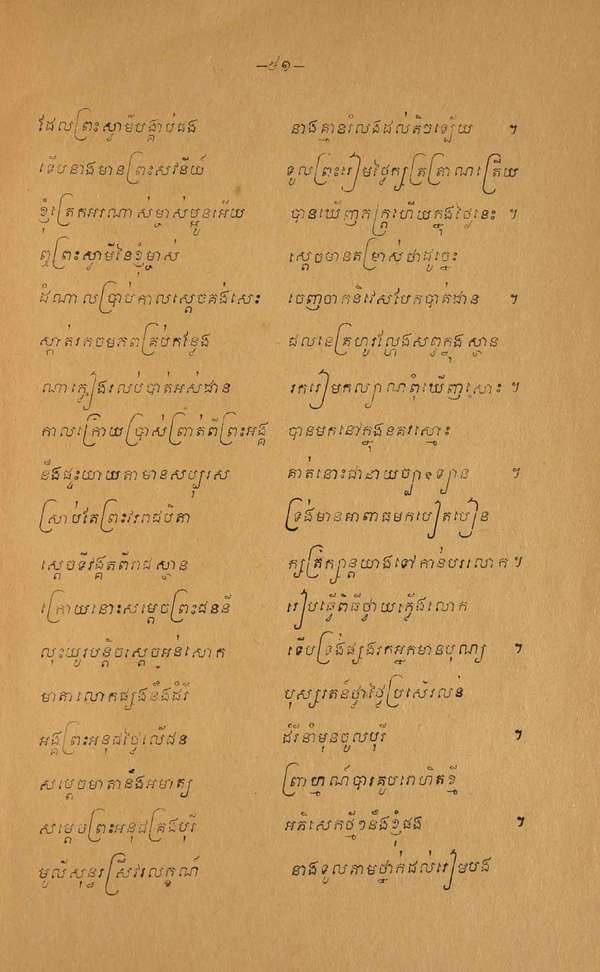 –៥១–
ដែលព្រះស្វាមីបង្គាប់ផង នាងគ្មានរំលងដល់តិចឡើយ ។
ទើបនាងមានព្រះសវនីយ៍ ទូលព្រះរៀមថ្ងៃក្សត្រត្រាណត្រើយ
ខ្ញុំត្រេកអរណាស់ម្ចាស់ប្អូនអើយ បានឃើញភក្ត្រហើយក្នុងថ្ងៃនេះ ។
ឮព្រះស្វាមីនៃខ្ញុំម្ចាស់ ស្ដេចមានតម្រាស់ថាដូច្នេះ
ដំណាលប្រាប់កាលស្ដេចគង់សេះ ចេញចាកនិវេសបែកបាត់ដាន ។
ស្កាត់រកចមភពគ្រប់កន្លែង ជលនេត្រហូរល្ហែងសព្វក្នុងស្ថាន
ណាភ្លៀងរលប់បាត់អស់ដាន រករៀមកល្យាណពុំឃើញសោះ ។
កាលក្រោយប្រាស់ព្រាត់ពីព្រះអង្គ បានមកនៅក្នុងនគរស្មោះ
នឹងផ្ទះយាយតាមានសប្បុរស គាត់នោះជានាយច្បារឧទ្យាន ។
ស្រាប់តែព្រះវររាជបិតា ទ្រង់មានអាពាធមកបៀតបៀន
ស្ដេចទីវង្គតពីរាជស្ថាន ក្សត្រក្សាន្តយាងទៅកាន់បរលោក ។
ក្រោយនោះសម្ដេចព្រះជននី រៀបធ្វើពិធីថ្វាយភ្លើងលោក
លុះយូរបន្តិចស្ដេចអន់សោក ទើបទ្រង់ផ្សងរកអ្នកមានបុណ្យ ។
មាតាលោកផ្សងនឹងដំរី បុស្សរតន៍ថ្លាថ្លៃប្រសើរលន់
អង្គព្រះអនុជថ្លៃលើជន ដំរីនាំមុនចូលបុរី ។
សម្ដេចមាតានឹងអមាត្យ ព្រាហ្មណ៍បារគូបរោហិតខ្មី
សម្ដេចព្រះអនុជគ្រងបុរី អភិសេកថ្មីៗនឹងខ្ញុំផង ។
មូលីសុន្ទរស្រីវរលក្ខណ៍ នាងទូលតាមថ្នាក់ដល់រៀមបង